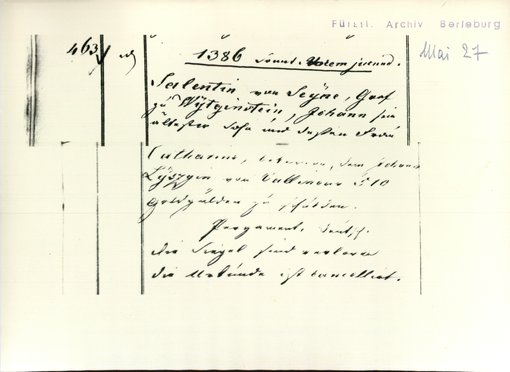 Fürstl. Archiv Berleburg
Mai 27
463
1386
Salentin von Seyne, Graf
zu Wytgenstein, Johann sein
ältester Sohn und dessen Frau
Catharina, bekennen, dem Johann
von 510
Goldgulden zu schulden.
Pergament, deutsch.
die Siegel sind verloren
die Urkunde ist cancelliert.